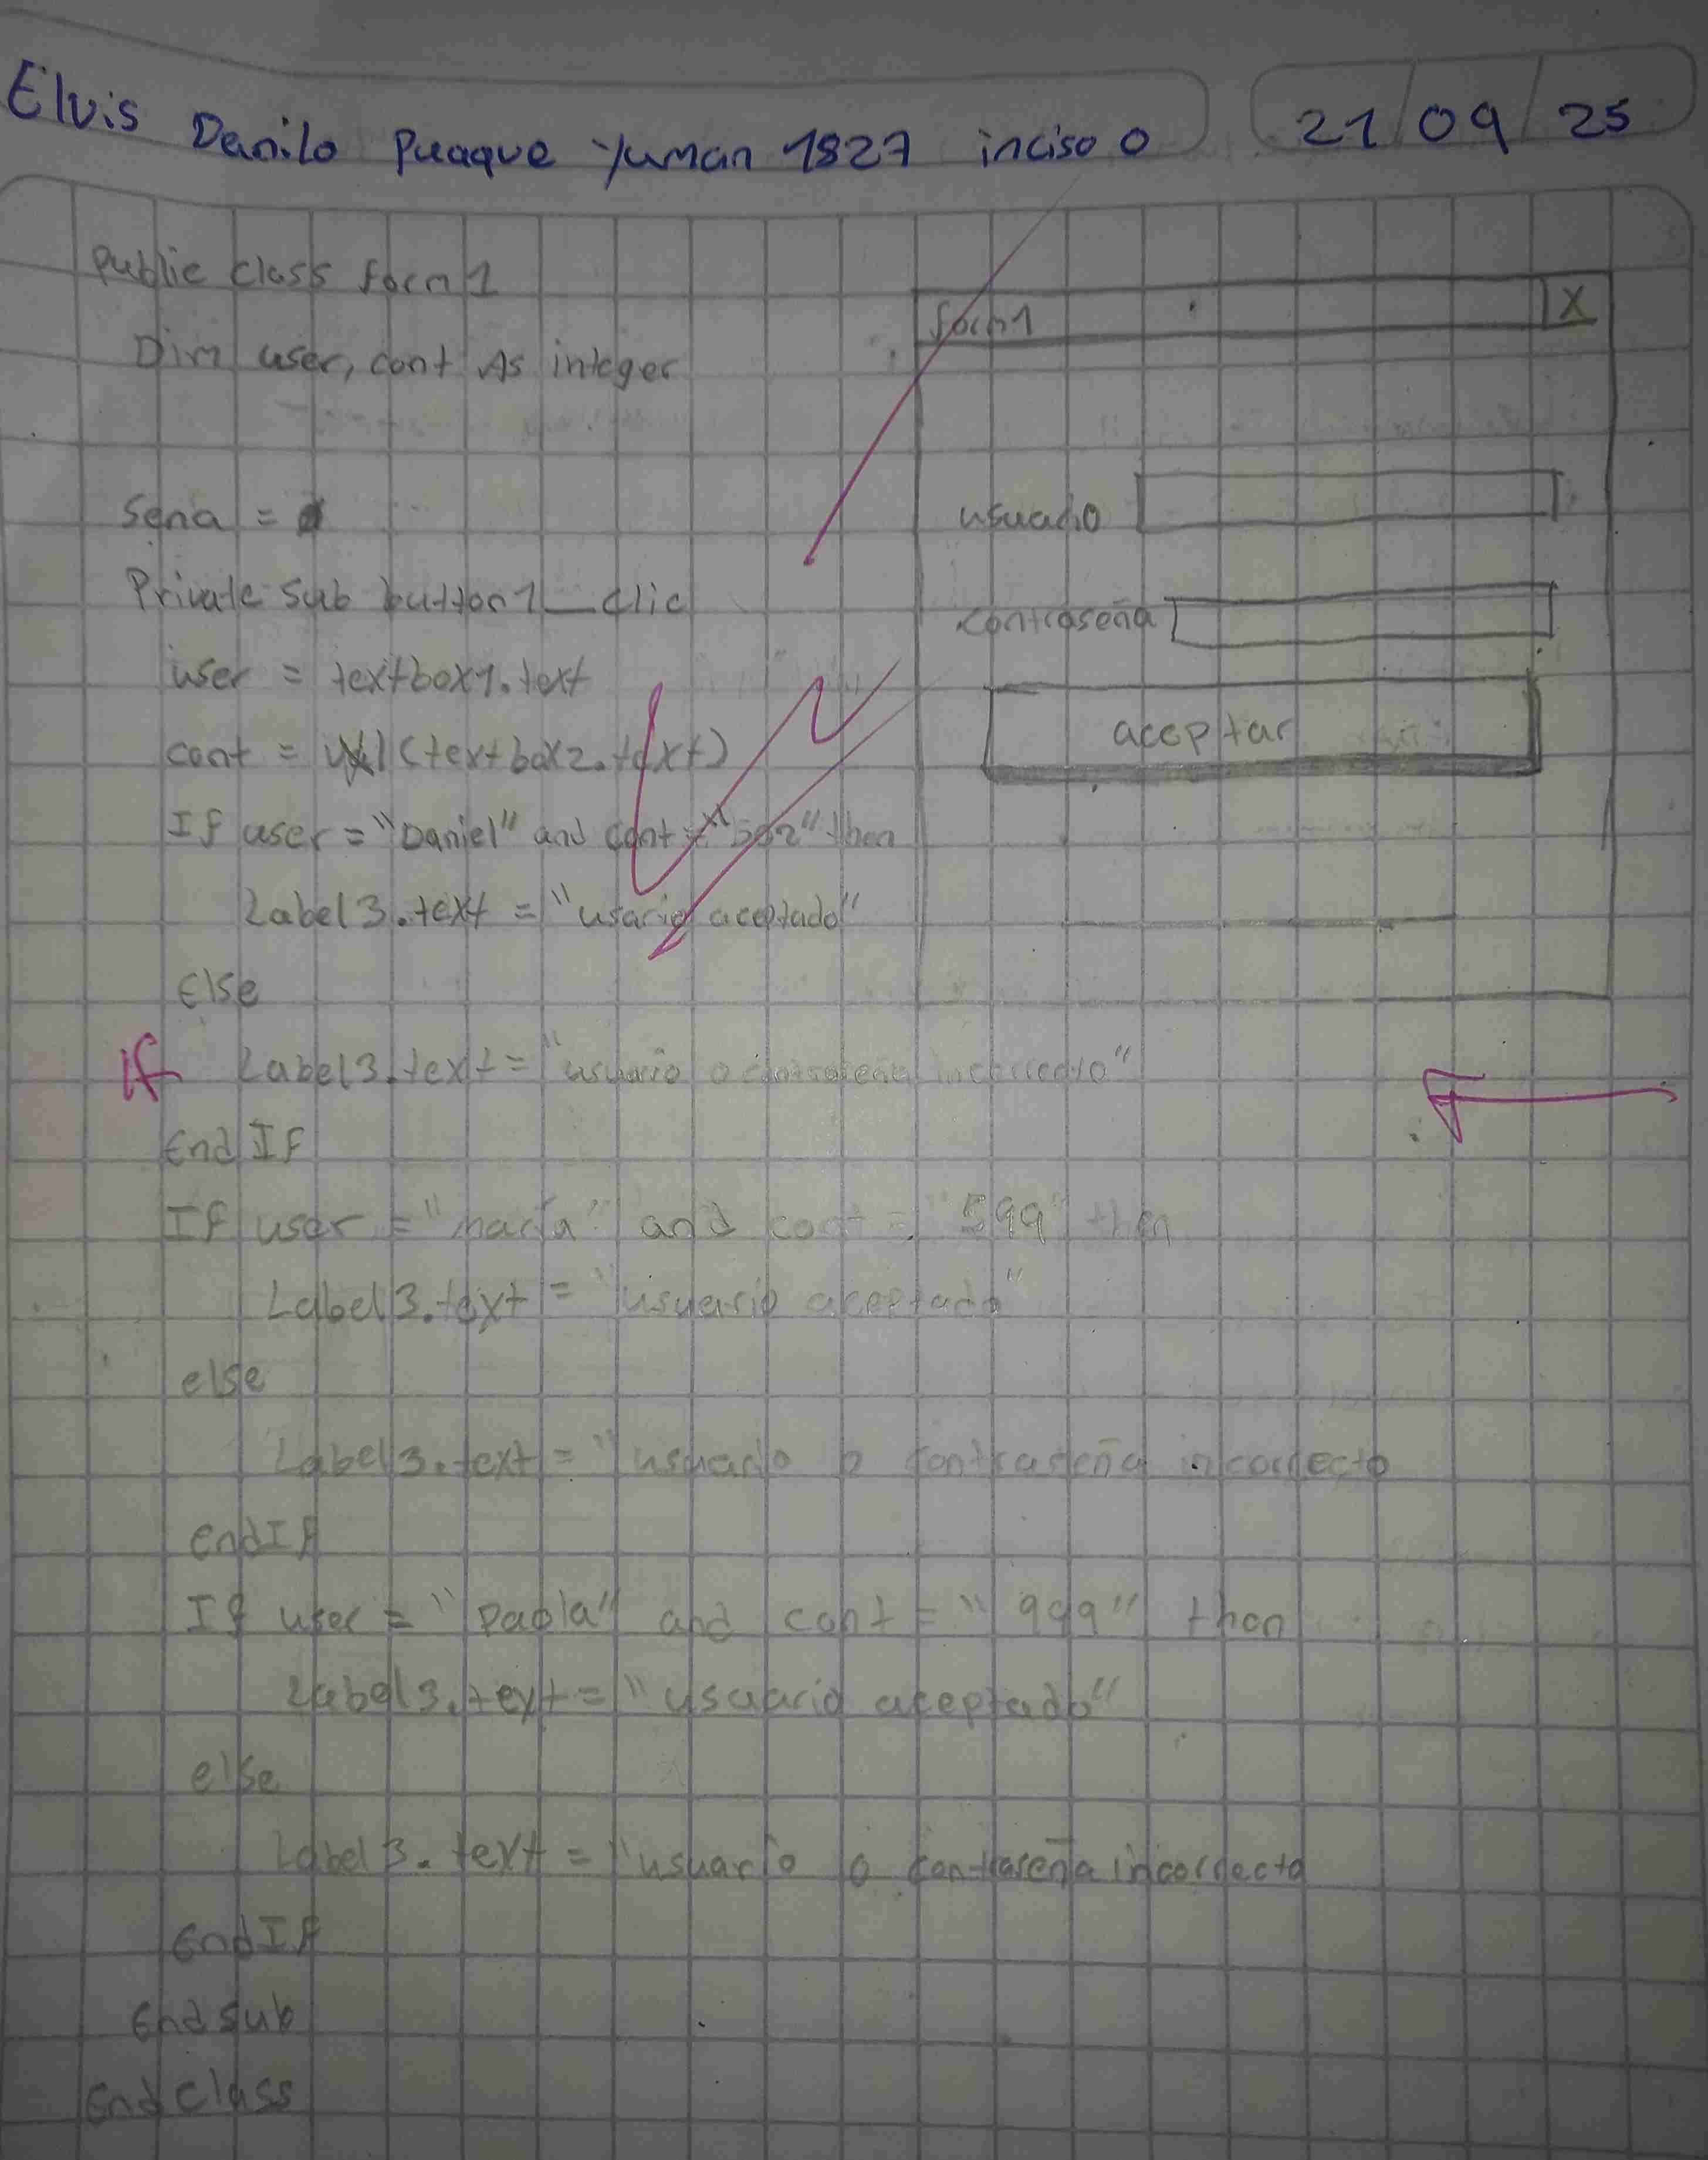 Elvis Danilo Puaque Yuman 1827 inciso o
21/09/25
Public class form1
Dim user, cont As integer
Seña =
Private Sub button1_clic
user = textbox1.text
cont = val(textbox2.text)
If user = "Daniel" and cont = "502" then
Label3.text = "usario aceptado"
Else
If
Label3.text = "usuario o incorrecto"
End If
If user = "maria" and cont = "599" then
Label3.text = "usuario aceptado"
else
Label3.text = "usuario o contraseña incorrecto
End If
If user = "paola" and cont = "999" then
Label3.text = "usuario aceptado"
else
Label3.text = "usuario o contraseña incorrecto
End If
End Sub
End class
form1 X
usuario
contraseña
aceptar